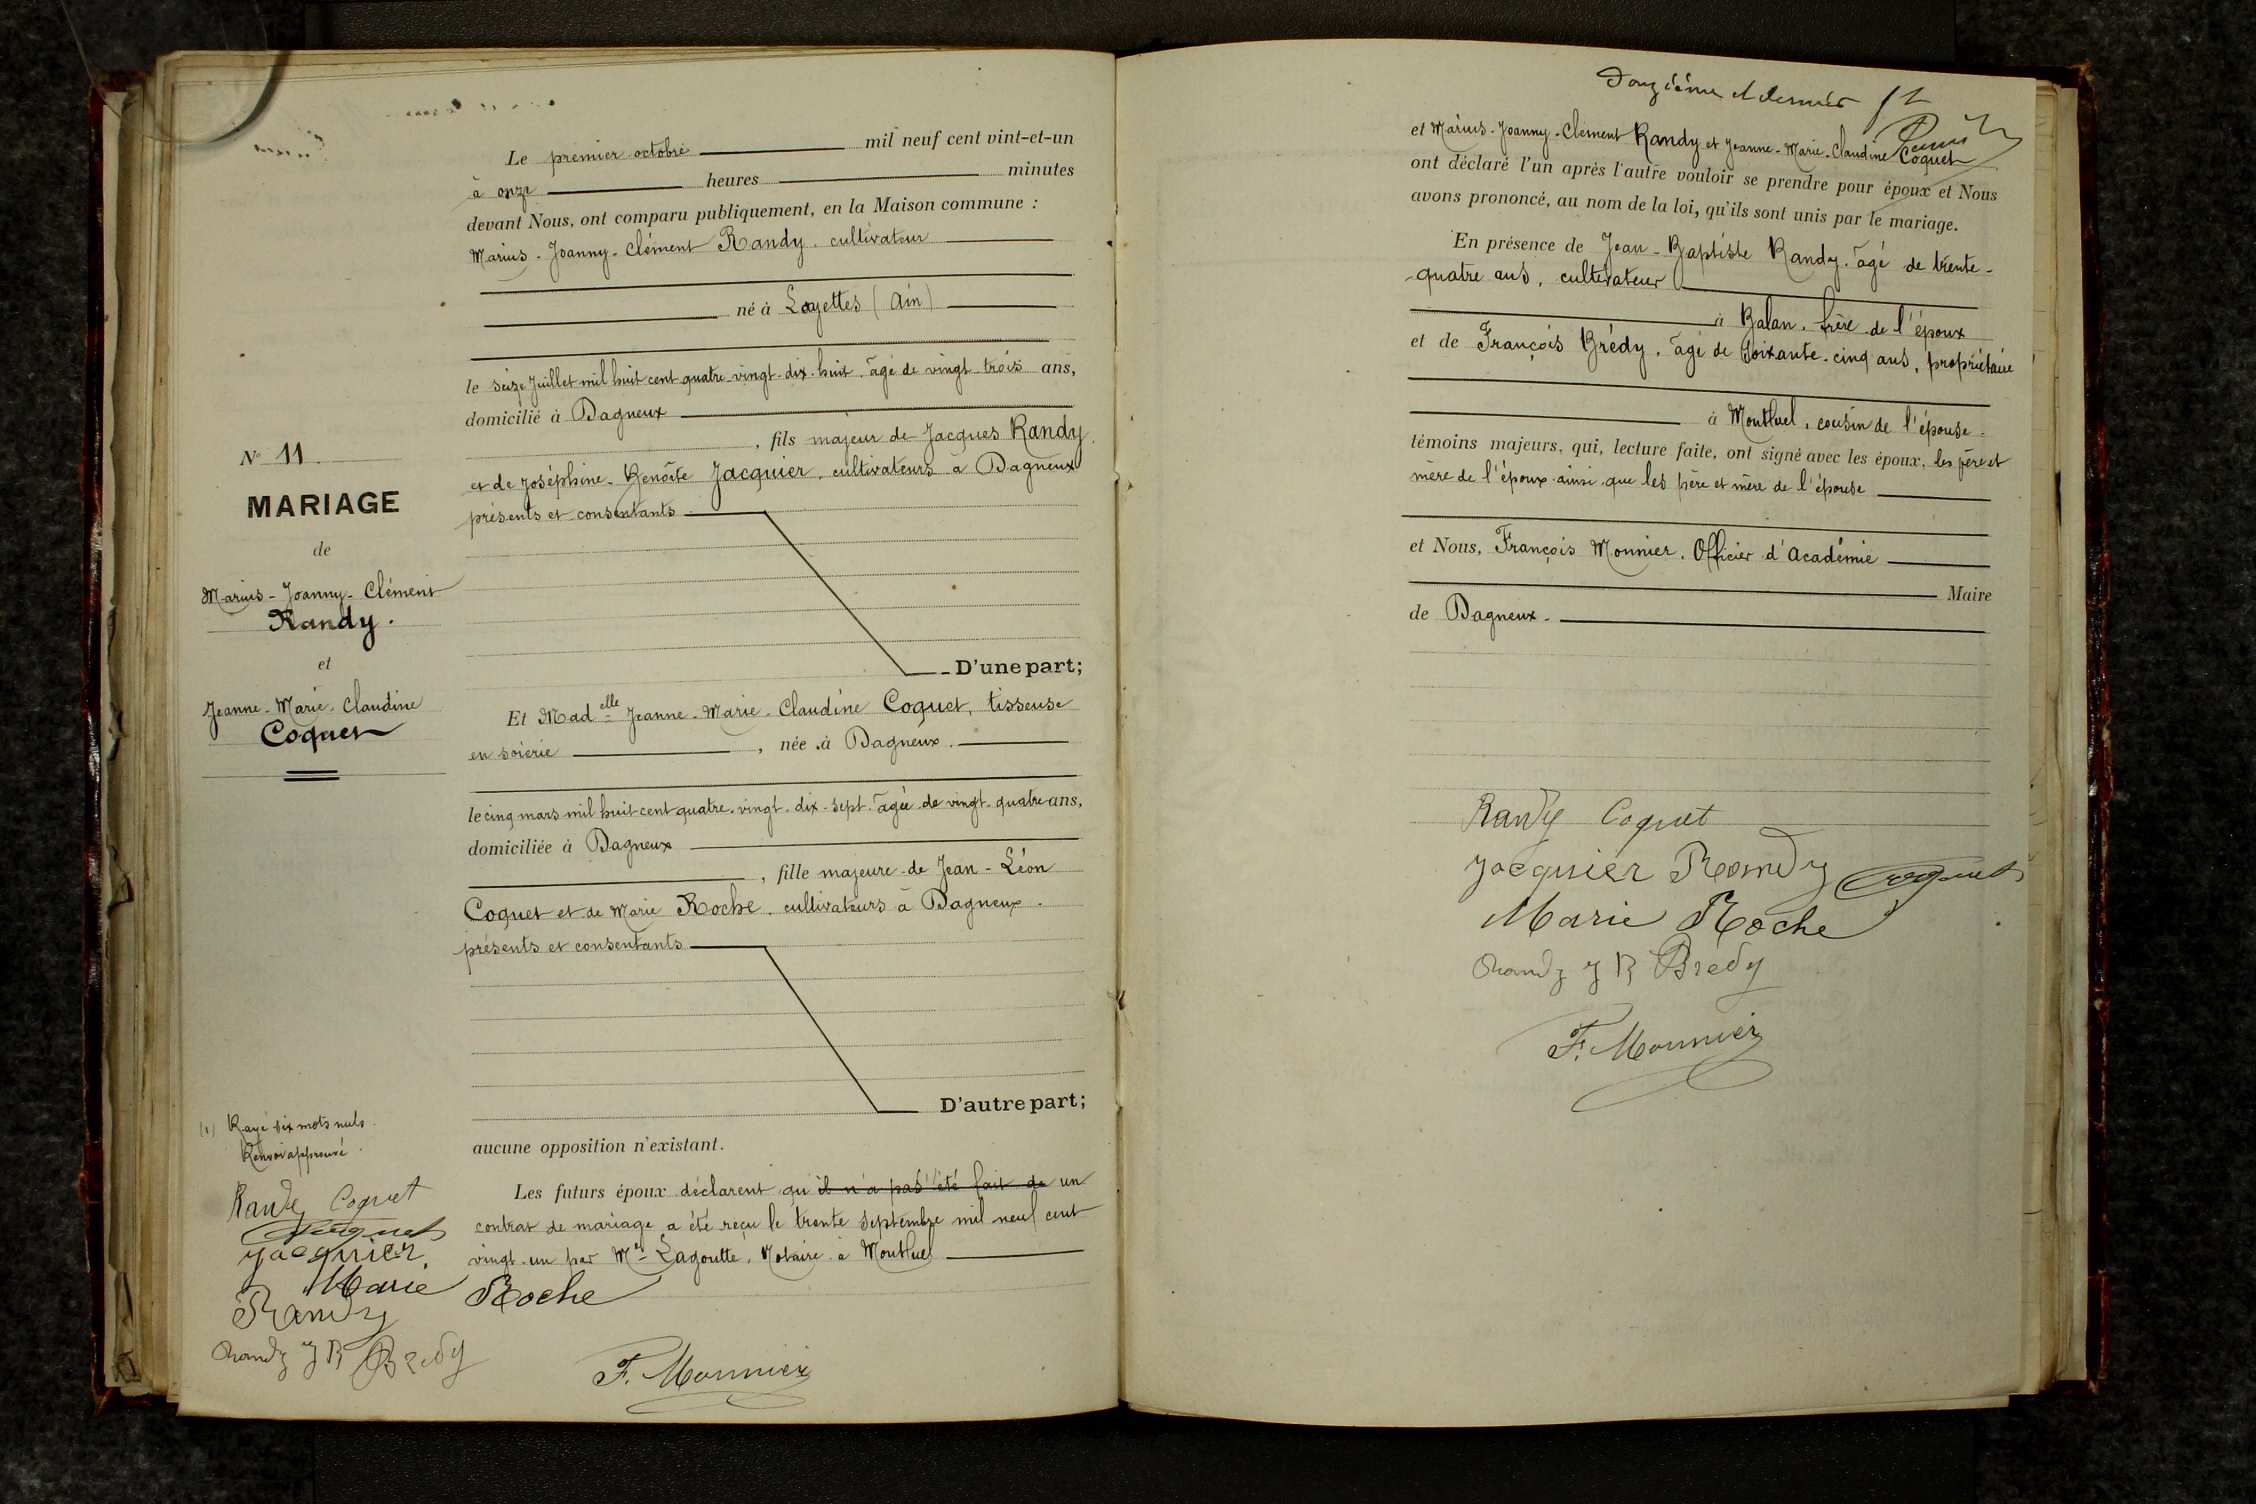 N° 11
MARIAGE
de
Marius-Joanny-Clément
Randy.
et
Jeanne-Marie-Claudine
Coquet
(1) Rayé six mots nuls
Renvoi approuvé
Randy Coquet
Coquet
Jacquier
Marie Roche
Randy
Randy J B Brédy
F. Monnier
Le premier octobre mil neuf cent vint-et-un
à onze heures minutes
devant Nous, ont comparu publiquement, en la Maison commune :
Marius-Joanny-Clément Randy, cultivateur
né à Loyettes (Ain)
le seize Juillet mil huit cent quatre-vingt-dix-huit, âgé de vingt-trois ans,
domicilié à Dagneux
, fils majeur de Jacques Randy
et de Joséphine-Benoîte Jacquier, cultivateurs à Dagneux
présents et consentants
D'une part;
Et Madelle Jeanne-Marie-Claudine Coquet, tisseuse
en soierie , née à Dagneux.
le cinq mars mil huit cent quatre-vingt-dix-sept, âgée de vingt-quatre ans,
domiciliée à Dagneux
, fille majeure de Jean-Léon
Coquet et de Marie Roche, cultivateurs à Dagneux.
présents et consentants
D'autre part;
aucune opposition n'existant.
Les futurs époux déclarent qu'il n'a pas été fait de un
contrat de mariage a été reçu le trente septembre mil neuf cent
vingt-un par Me Lagoutte, Notaire à Montluel
Douzième et dernier
et Marius-Joanny-Clément Randy et Jeanne-Marie-Claudine Coquet
ont déclaré l'un après l'autre vouloir se prendre pour époux et Nous
avons prononcé, au nom de la loi, qu'ils sont unis par le mariage.
En présence de Jean-Baptiste Randy, âgé de trente-
quatre ans, cultivateur
à Balan, frère de l'époux
et de François Brédy, âgé de soixante-cinq ans, propriétaire
à Montluel, cousin de l'épouse.
témoins majeurs, qui, lecture faite, ont signé avec les époux, les père et
mère de l'époux ainsi que les père et mère de l'épouse
et Nous, François Monnier, Officier d'Académie
Maire
de Dagneux.
Randy Coquet
Jacquier Randy Coquet
Marie Roche
Randy J B Brédy
F. Monnier